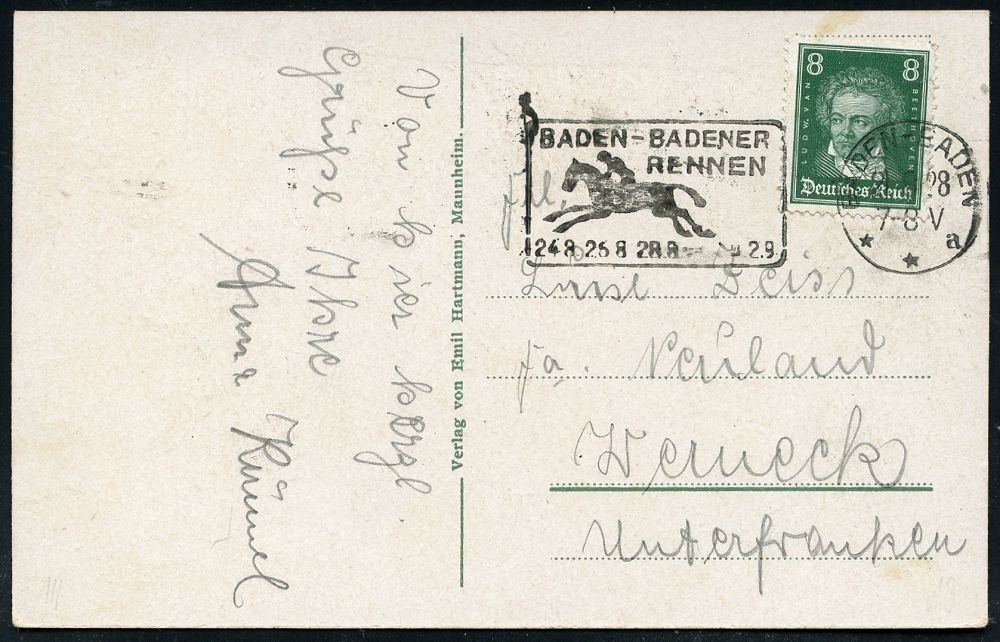 Von hier herzl
Grüsse Ihre
Anna Kümmel
Verlag von Emil Hartmann, Mannheim.
BADEN-BADENER
RENNEN
24.8 26.8 28.8 2.9
8 8
LUDW. VAN BEETHOVEN
Deutsches Reich
BADEN-BADEN
28
7-8 V
a
Frl.
Luise Deiss
Fa. Neuland
Werneck
Unterfranken